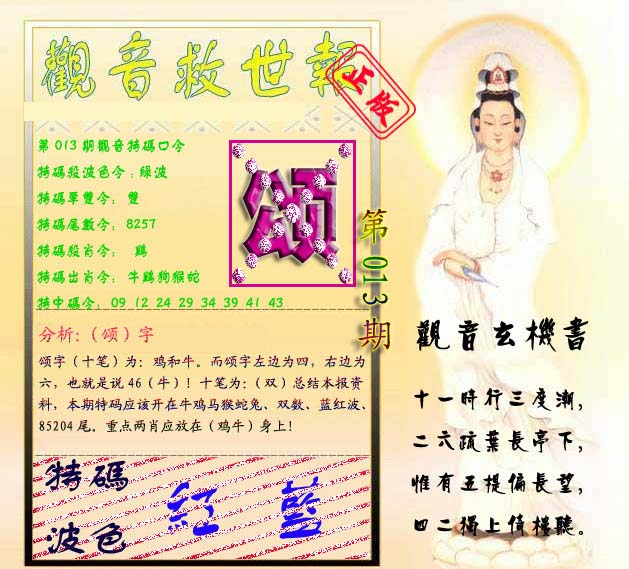 觀音救世報
正版
第013期觀音特碼口令
特碼殺波色令:綠波
特碼單雙令: 雙
特碼尾數令: 8257
特碼殺肖令: 鷄
特碼出肖令: 牛鷄狗猴蛇
特中碼令: 09 12 24 29 34 39 41 43
颂
第013期
分析:（颂）字
颂字（十笔）为：鸡和牛。而颂字左边为四，右边为
六，也就是说46（牛）！十笔为：（双）总结本报资
料，本期特码应该开在牛鸡马猴蛇兔、双数、蓝红波、
85204尾。重点两肖应放在（鸡牛）身上！
特碼
波色
紅 藍
觀音玄機書
十一時行三度潮,
二六疏葉長亭下,
惟有五提偏長望,
四二獨上倚樓聽。